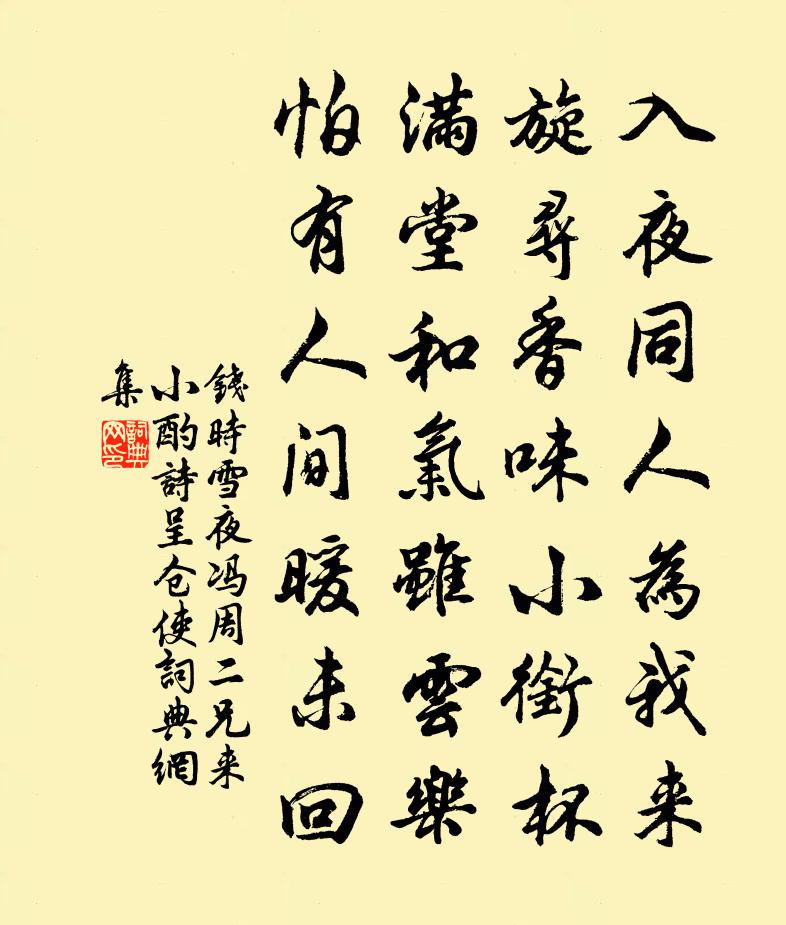 入夜同人為我来
旋尋香味小銜杯
滿堂和氣雖雲樂
怕有人间暖未回
錢時雪夜冯周二兄来
小酌詩呈仓使詞典網
集
詞典网印